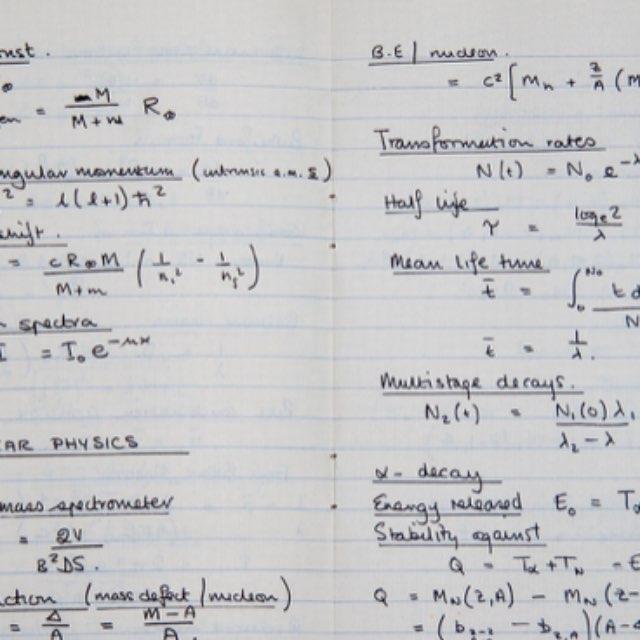 nst.
= M / M+m R∞
ngular momentum (intrinsic a.m. s)
² = l(l+1)ħ²
hift.
= cR∞M / M+m (1/n₁² - 1/n₂²)
spectra
I = I₀ e^-μx
EAR PHYSICS
mass spectrometer
= 2V / B²DS.
ction (mass defect / nucleon)
= Δ/A = M-A / A.
B.E / nucleon.
= c² [ Mn + Z/A (M
Transformation rates
N(t) = N₀ e^-λ
Half life
τ = logₑ2 / λ
Mean life time
t̄ = ∫₀^N₀ t d / N
t̄ = 1/λ.
Multistage decays.
N₂(t) = N₁(0) λ₁ / λ₂ - λ
α - decay
Energy released E₀ = Tα
Stability against
Q = Tα + TN = E
Q = MN(Z,A) - MN(Z-
= (b Z-2 - b Z,A)(A-